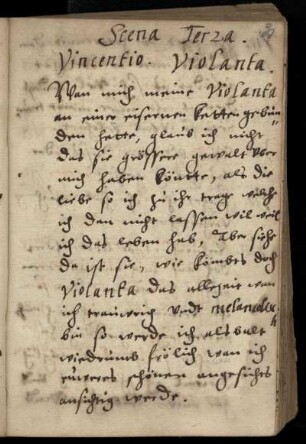 Scena Terza.
Vincentio. Violanta.
Wan mich meine Violanta
an einer eisernen ketten gebun=
den hette, glaub ich nicht
das sie grössere gewalt vber
mich haben könnte, als die
liebe so ich zu ihr trage welche
ich dan nicht lassen wil weil
ich das leben hab, Aber siehe
da ist sie, wie kombts doch
Violanta das allezeit wan
ich trauwrig vndt melancolisch
bin so werde ich alsbalt
wiedrumb frölich wan ich
euweres schönen angesichts
ansichtig werde.